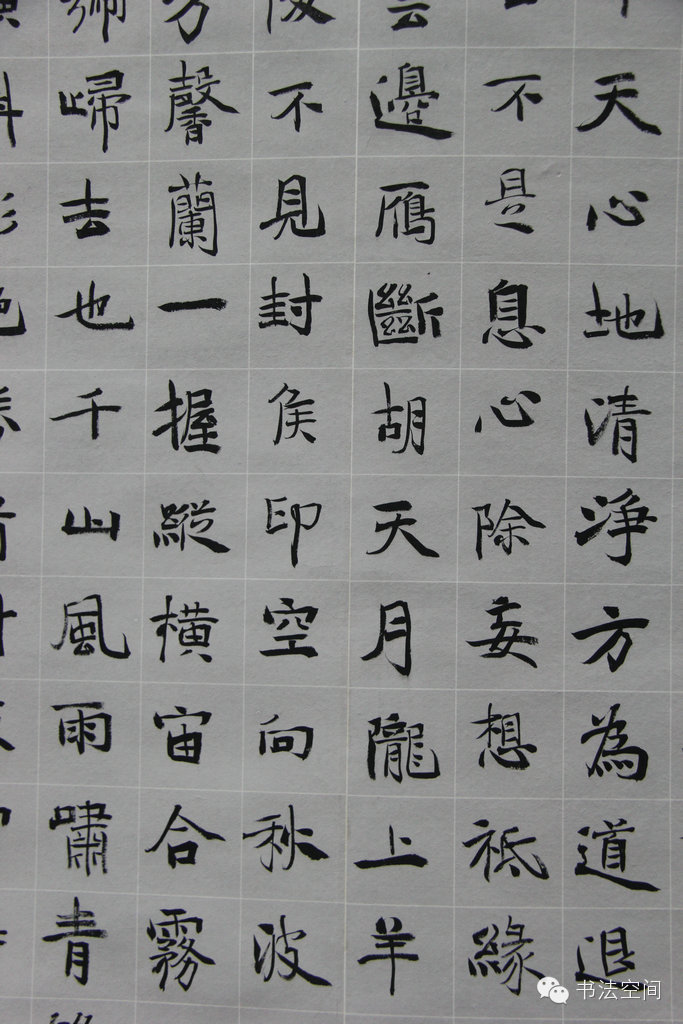 天心地清净方為道退
不是息心除妄想祗緣
邊鴈斷胡天月隴上羊
不見封侯印空向秋波
方馨蘭一握縱橫宙合霧
歸去也千山風雨嘯青
书法空间